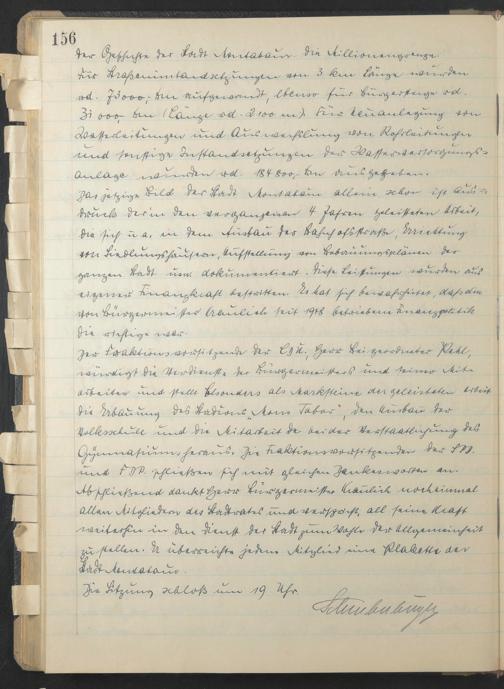 156
der Geschichte der Stadt Montabaur die Millionengrenze.
Für Straßeninstandsetzungen von 3 km Länge wurden
rd. 73000,- DM aufgewandt, ebenso für Bürgersteige rd.
31000,- DM (Länge rd. 2100 m). Für Neuanlegung von
Wasserleitungen und Auswechslung von Rohrleitungen
und sonstige Instandsetzungen der Wasserversorgungs-
anlage wurden rd. 184 800,- DM ausgegeben.
Das jetzige Bild der Stadt Montabaur allein schon ist Aus-
druck der in den vergangenen 4 Jahren geleisteten Arbeit,
die sich u.a. in dem Ausbau der Bahnhofstraße, Errichtung
von Siedlungshäusern, Aufstellung von Bebauungsplänen der
ganzen Stadt usw. dokumentiert. Diese Leistungen wurden aus
eigener Finanzkraft bestritten. Es hat sich bewahrheitet, daß die
von Bürgermeister Kraulich seit 1948 betriebene Finanzpolitik
die richtige war.
Der Fraktionsvorsitzende der CDU, Herr Beigeordneter Kehl,
würdigt die Verdienste des Bürgermeisters und seiner Mit-
arbeiter und stellt besonders als Marksteine der geleisteten Arbeit
die Erbauung des Stadions "Mons Tabor", den Ausbau der
Volksschule und die Mitarbeit bei der Verstaatlichung des
Gymnasiums heraus. Die Fraktionsvorsitzenden der SPD
und FDP schließen sich mit gleichen Dankesworten an.
Abschließend dankt Herr Bürgermeister Kraulich nocheinmal
allen Mitgliedern des Stadtrates und verspricht, all seine Kraft
weiterhin in den Dienst der Stadt zum Wohle der Allgemeinheit
zu stellen. Er überreichte jedem Mitglied eine Plakette der
Stadt Montabaur.
Die Sitzung schloß um 19 Uhr